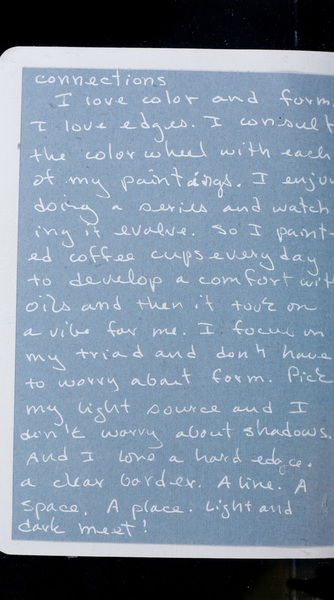 connections
I love color and form
I love edges. I consult
the color wheel with each
of my paintings. I enjoy
doing a series and watch-
ing it evolve. So I paint-
ed coffee cups every day
to develop a comfort with
oils and then it took on
a vibe for me. I focus on
my triad and don't have
to worry about form. Pick
my light source and I
don't worry about shadows.
And I love a hard edge.
a clear border. A line. A
space. A place. Light and
dark meet!